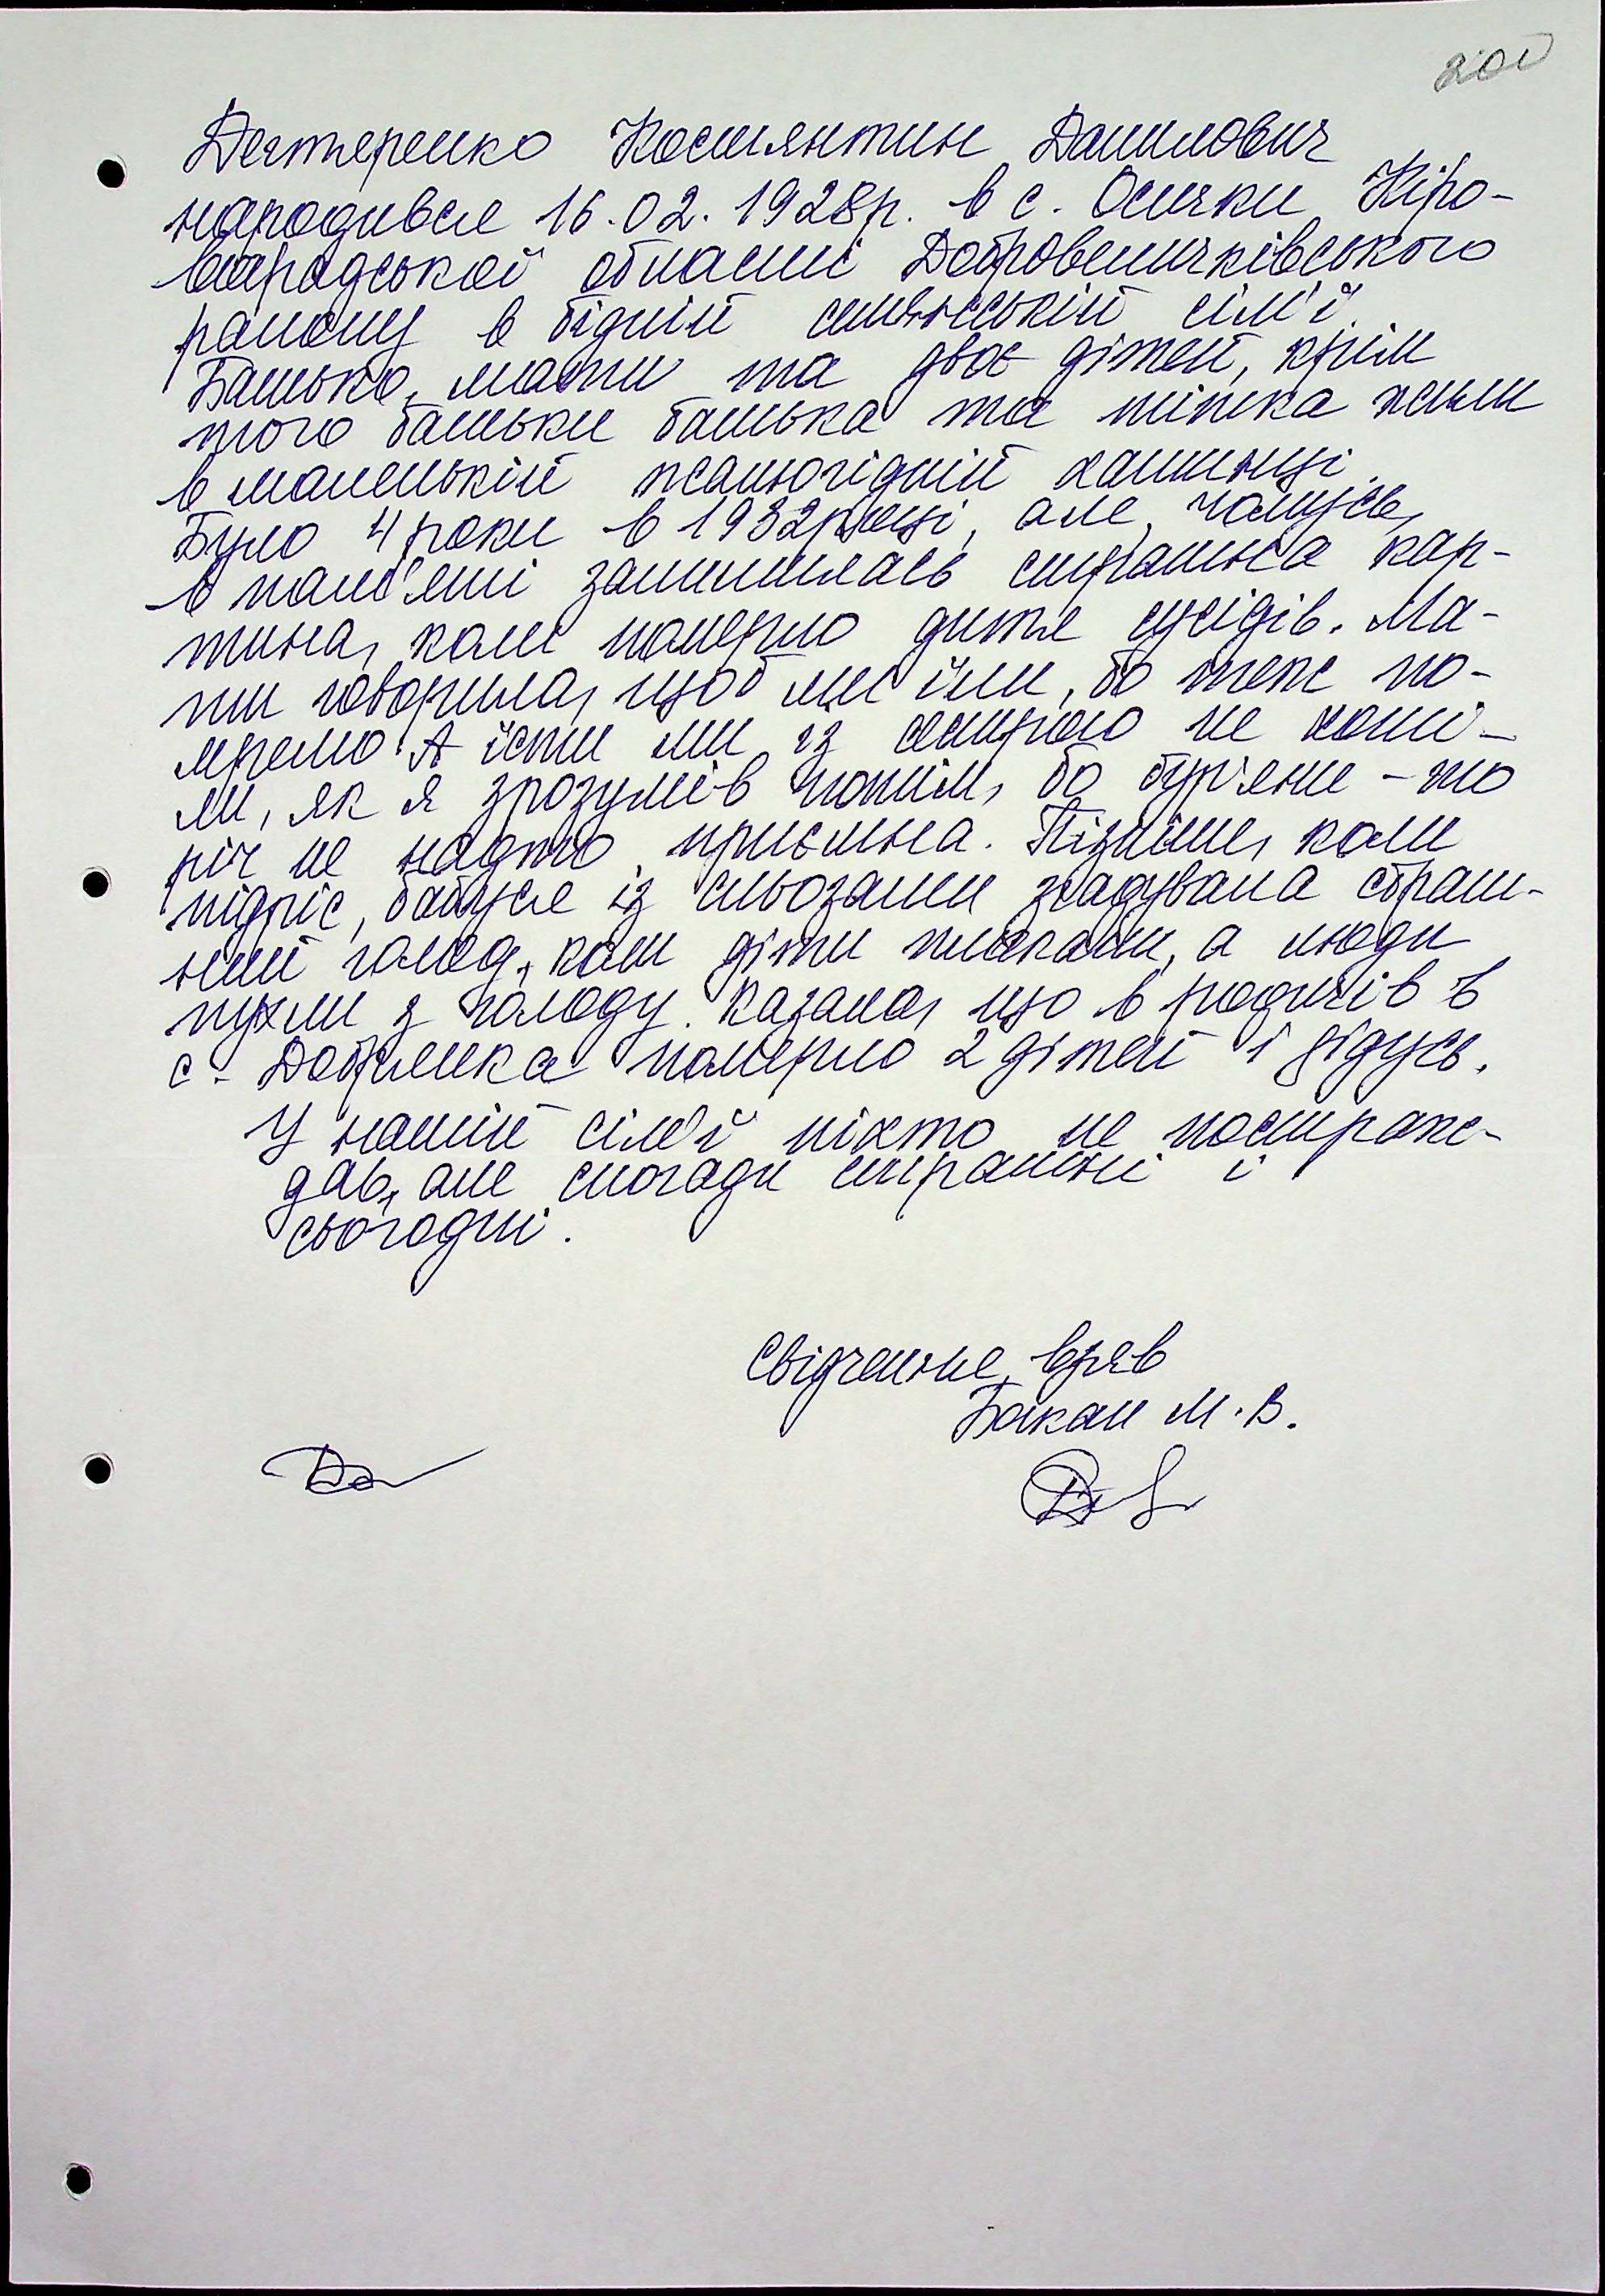 201
Дегтеренко Костянтин Данилович
народився 16.02.1928р. в с. Осички Кіро-
воградської області Добровеличківського
району в бідній селянській сім'ї.
Батько, мати та двоє дітей, крім
того батьки батька та тітка жили
в маленькій жалюгідній хатинці.
Було 4 роки в 1932році, але чомусь
в пам'яті залишилась страшна кар-
тина, коли померло дитя сусідів. Ма-
ти говорила, щоб ми їли, бо теж по-
мремо. А їсти ми із сестрою не хоті-
ли, як я зрозумів потім, бо бур'яни - то
річ не надто приємна. Пізніше, коли
підріс, бабуся із сльозами згадувала страш-
ний голод, коли діти плакали, а люди
пухли з голоду. Казала, що в родичів в
с. Добрянка померло 2 дітей і дідусь.
У нашій сім'ї ніхто не постраж-
дав, але спогади страшні і
сьогодні.
Свідчення взяв
Бакал М.В.